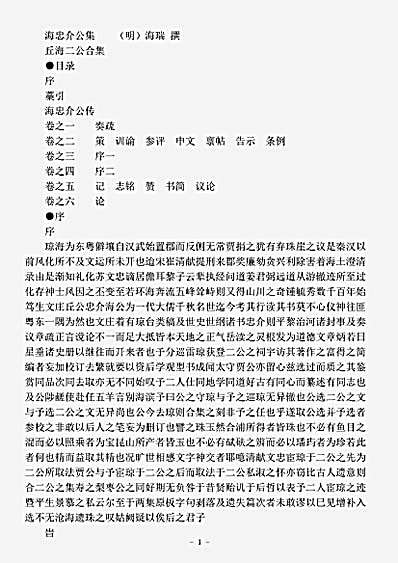 海忠介公集 （明）海瑞 撰
丘海二公合集
●目录
序
藁引
海忠介公传
卷之一 奏疏
卷之二 策 训谕 参评 申文 禀帖 告示 条例
卷之三 序一
卷之四 序二
卷之五 记 志铭 赞 书简 议论
卷之六 论
●序
序
琼海为东粤僻壤自汉武始置郡而反侧无常贾捐之犹有弃珠崖之议是秦汉以
前风化所不及文运所未开也迨宋崔清献提刑来郡奖廉劾贪兴利除害着海上澄清
录由是渐知礼化苏文忠谪居儋耳黎子云辈执经问道姜君弼远道从游辙迹所至过
化存神士风因之丕变至若环海奔流五峰耸峙则又得山川之奇锺毓秀数千百年始
笃生文庄丘公忠介海公为一代大儒千秋名世迄今考其行读其书莫不心仪神往匪
粤东一隅为然也文庄着有琼台类稿及世史世纲诸书忠介则平黎治河诸封事及奏
议章疏正言谠论不一而足大抵皆本天地之正气岳渎之灵根发为道德文章炳若日
星垂诸史册以继往而开来者也予分巡雷琼获登二公之祠宇访其著作之富得之简
编者妄加校订去繁就要以资后学观型书成间太守贾公亦留心兹选过而质之其鉴
赏同品次同去取亦无不同始叹于二人仕同地学同道好古有同心而纂述有同志也
及公陟鹾使赴任五羊言别海滨予曰公之守琼与予之巡琼无异辙也公选二公之文
与予选二公文无异尚也公今去琼则合集之刻非予之任也乎遂取公选并予选者
参校之非敢以后人之笔妄为删订也譬之珠玉然合浦所得者皆珠也不必有鱼目之
混而必以照乘者为宝昆山所产者皆玉也不必有碔砆之辨而必以璠玙者为珍若此
者何也精而益取其精也况旷世相感文字神交者耶噫清献文忠宦琼于二公之先为
二公所取法贾公与予宦琼于二公之后而取法于二公私淑之怀亦窃比古人遗意则
合二公之集寿之梨枣公之同好期无负咎于昔贤贻讥于后哲以表予二人宦琼之迹
暨平生景慕之私云尔至于两集原板字句剥落及遗失篇次者未敢谬以已见增补入
选不无沧海遗珠之叹姑阙疑以俟后之君子
旹
- 1 -